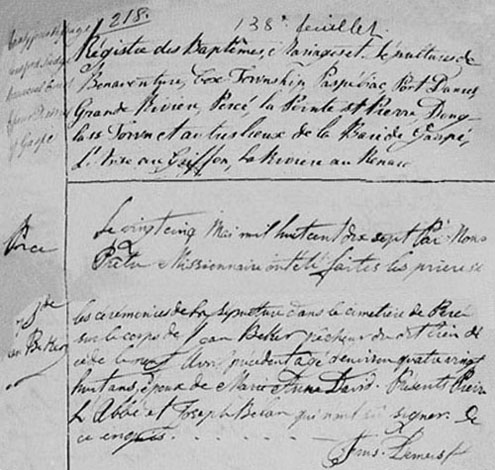 218.
138e feuillet
Registre des Baptêmes, Mariages et Sépultures de
Bonaventure, Cox Township, Paspébiac, Port Daniel
Grande Riviere, Percé, la Pointe St Pierre, Doug
lass Town et autres lieux de la Baie de Gaspé,
L'Anse au Griffon, la Riviere au Renard
Percé
Le vingt cinq Mai mil huit cent dix sept Par Nous
Prêtre Missionnaire ont été faites les prieres et
Sre
Jean Beker
les ceremonies de la sepulture dans le cimetière de Percé
sur le corps de Jean Beker pêcheur du dit lieu dé
cédé le Avril précédent agé d'environ quatre vingt
huit ans, époux de Marie Anne David. Présents Pierre
L'Abbé et Joseph qui n'ont sû signer. De
ce enquis.